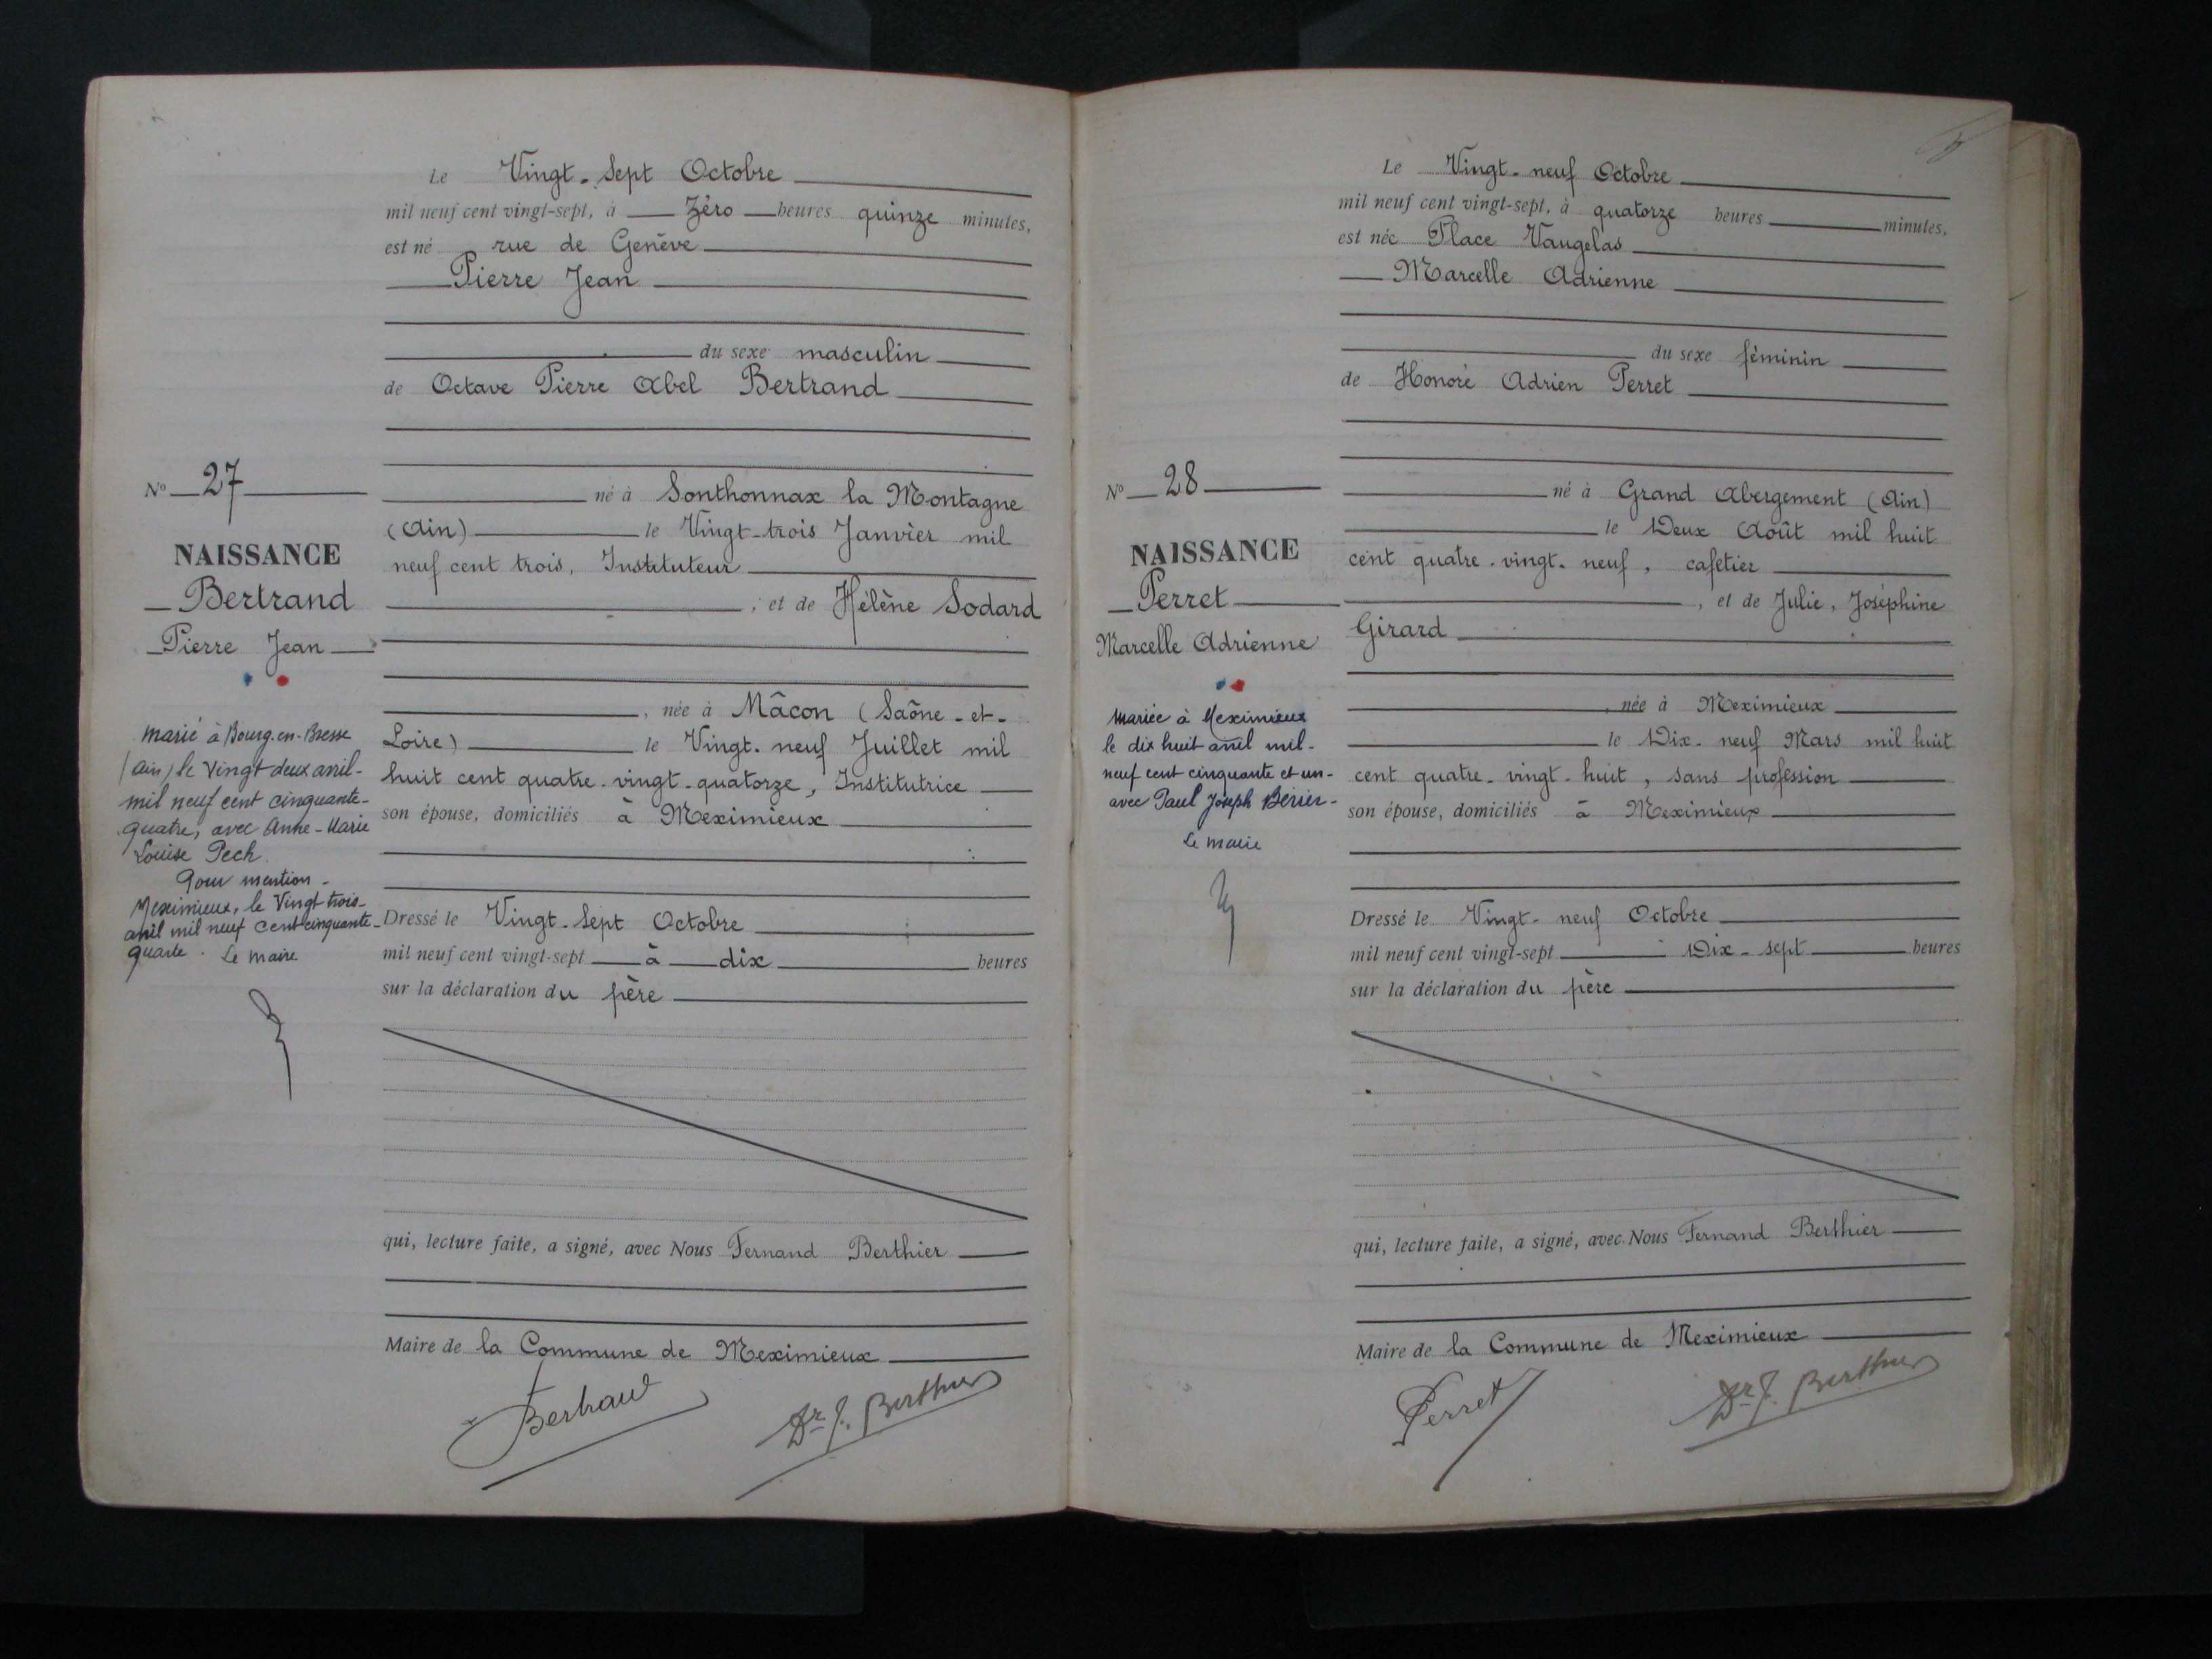 Le Vingt-Sept Octobre
mil neuf cent vingt-sept, à Zéro heures quinze minutes,
est né rue de Genève
Pierre Jean
du sexe masculin
de Octave Pierre Abel Bertrand
né à Sonthonnax la Montagne
(Ain) le Vingt-trois Janvier mil
neuf cent trois, Instituteur
; et de Hélène Sodard
, née à Mâcon (Saône-et-
Loire) le Vingt-neuf Juillet mil
huit cent quatre-vingt-quatorze, Institutrice
son épouse, domiciliés à Meximieux
Dressé le Vingt-Sept Octobre
mil neuf cent vingt-sept à dix heures
sur la déclaration du père
qui, lecture faite, a signé, avec Nous Fernand Berthier
Maire de la Commune de Meximieux
Bertrand
Dr F. Berthier
N° 27
NAISSANCE
Bertrand
Pierre Jean
marié à Bourg-en-Bresse
(Ain) le Vingt deux avril-
mil neuf cent cinquante-
quatre, avec Anne-Marie
Louise Pech.
Pour mention-
Meximieux, le Vingt trois-
avril mil neuf cent cinquante-
quatre. Le maire
Le Vingt-neuf Octobre
mil neuf cent vingt-sept, à quatorze heures minutes,
est née Place Vaugelas
Marcelle Adrienne
du sexe féminin
de Honoré Adrien Perret
né à Grand Abergement (Ain)
le Deux Août mil huit
cent quatre-vingt-neuf, cafetier
, et de Julie, Joséphine
Girard
, née à Meximieux
le Dix-neuf Mars mil huit
cent quatre-vingt-huit, sans profession
son épouse, domiciliés à Meximieux
Dressé le Vingt-neuf Octobre
mil neuf cent vingt-sept Dix-sept heures
sur la déclaration du père
qui, lecture faite, a signé, avec Nous Fernand Berthier
Maire de la Commune de Meximieux
Perret
Dr F. Berthier
N° 28
NAISSANCE
Perret
Marcelle Adrienne
Mariée à Meximieux
le dix huit avril mil-
neuf cent cinquante et un-
avec Paul Joseph
Le maire